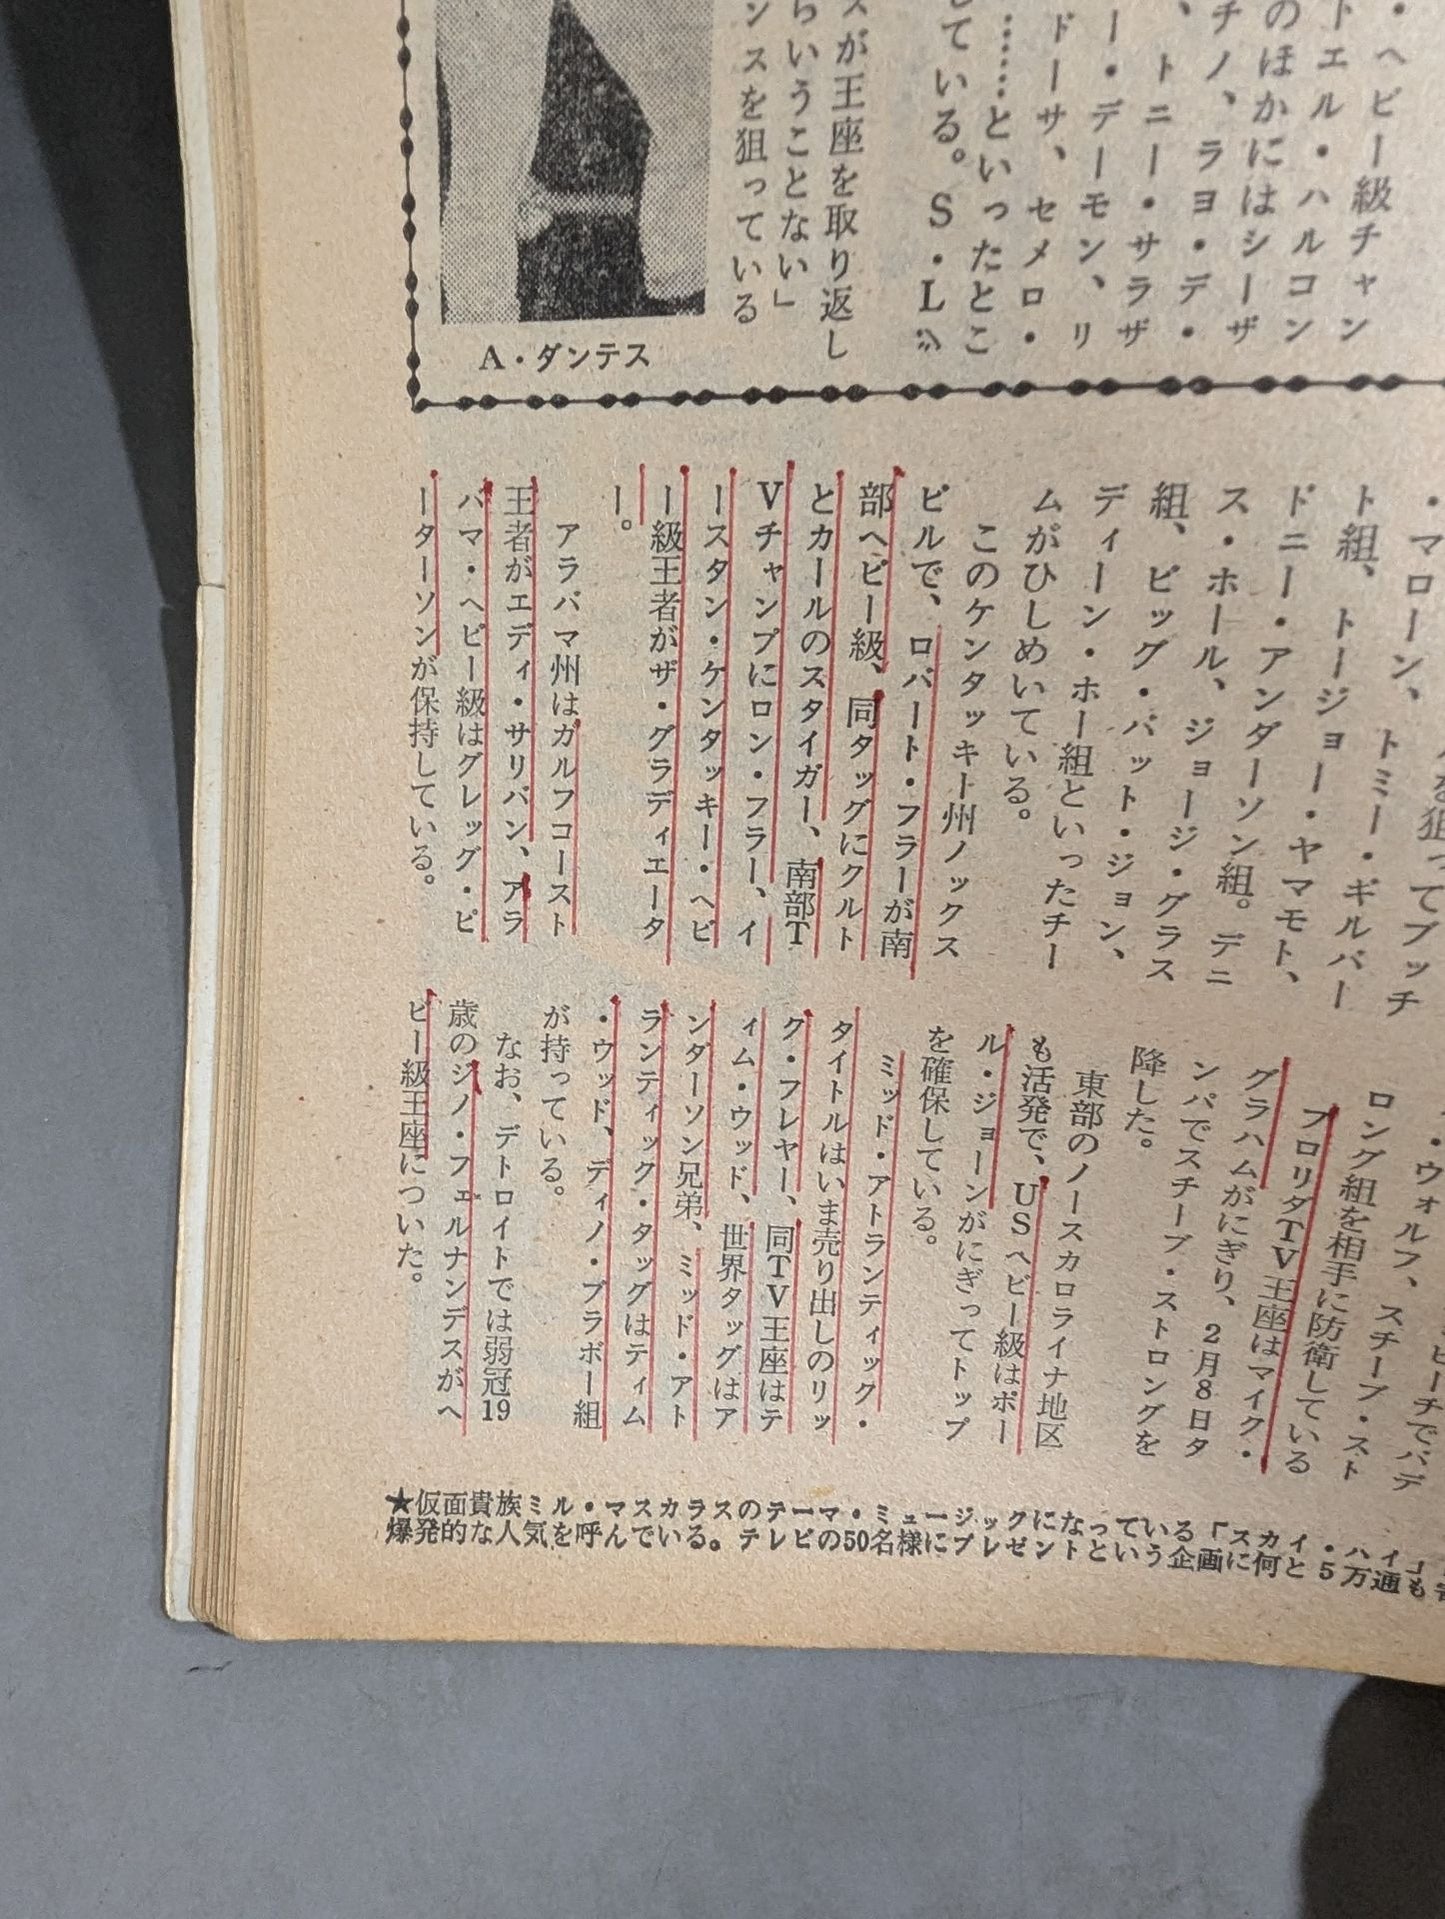 ・ヘビー級チャン
トエル・ハルコン
のほかにはシーザ
チノ、ラヨ・デ・
、トニー・サラザ
ー・デーモン、リ
ドーサ、セメロ・
……といったとこ
している。S・L》
スが王座を取り返し
らいうことない」
ンスを狙っている
A・ダンテス
を狙ってブッチ
・マローン、トミー・ギルバー
ト組、トージョー・ヤマモト、
ドニー・アンダーソン組。デニ
ス・ホール、ジョージ・グラス
組、ビッグ・バット・ジョン、
ディーン・ホー組といったチー
ムがひしめいている。
このケンタッキー州ノックス
ビルで、ロバート・フラーが南
部ヘビー級、同タッグにクルト
とカールのスタイガー、南部T
Vチャンプにロン・フラー、イ
ースタン・ケンタッキー・ヘビ
ー級王者がザ・グラディエータ
ー。
アラバマ州はガルフコースト
王者がエディ・サリバン、アラ
バマ・ヘビー級はグレッグ・ピ
ーターソンが保持している。
ビーチでバデ
・ウォルフ、スチーブ・スト
ロング組を相手に防衛している
フロリダTV王座はマイク・
グラハムがにぎり、2月8日タ
ンパでスチーブ・ストロングを
降した。
東部のノースカロライナ地区
も活発で、USヘビー級はポー
ル・ジョーンがにぎってトップ
を確保している。
ミッド・アトランティック・
タイトルはいま売り出しのリッ
ク・フレヤー、同TV王座はテ
ィム・ウッド、世界タッグはア
ンダーソン兄弟、ミッド・アト
ランティック・タッグはティム
・ウッド、ディノ・ブラボー組
が持っている。
なお、デトロイトでは弱冠19
歳のジノ・フェルナンデスがヘ
ビー級王座についた。
★仮面貴族ミル・マスカラスのテーマ・ミュージックになっている「スカイ・ハイ」
爆発的な人気を呼んでいる。テレビの50名様にプレゼントという企画に何と5万通も